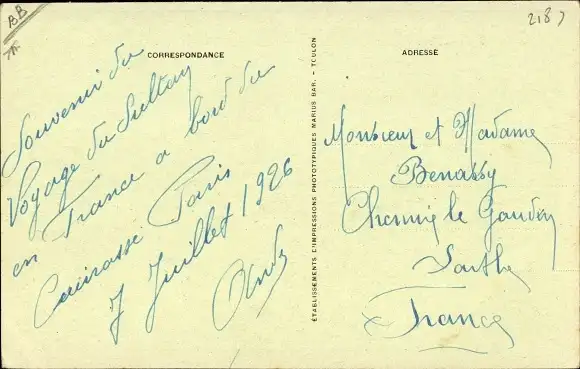 BB
2187
CORRESPONDANCE
Souvenir du
Voyage du Sultan
en France a bord du
Cuirasse Paris
7 Juillet 1926
ÉTABLISSEMENTS D'IMPRESSIONS PHOTOTYPIQUES MARIUS BAR. - TOULON
ADRESSE
Monsieur et Madame
Benassy
Chemiré le Gaudin
Sarthe
France